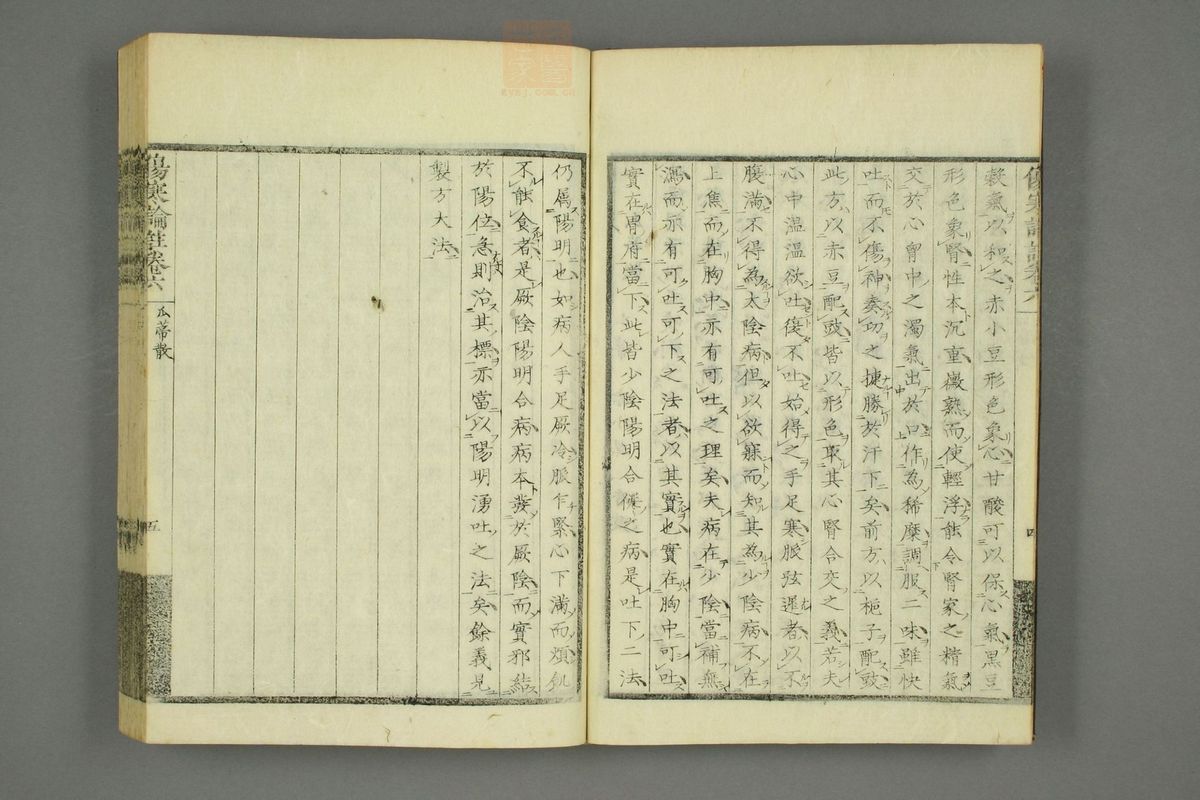 穀氣以和之赤小豆形色象心甘酸可以保心氣黑豆
形色象腎性本沉重黴熟而使輕浮能令腎家之精氣
交於心胷中之濁氣出於口作為稀糜調服二味雖快
吐而不傷神奏功之捷勝於汗下矣前方以梔子配豉
此方以赤豆配豉皆以形色取其心腎合交之義若夫
心中溫溫欲吐復不吐始得之手足寒脈弦遲者以不
腹滿不得為太陰病但以欲寐而知其為少陰病不在
上焦而在胸中亦有可吐之理矣夫病在少陰當補無
瀉而亦有可吐可下之法者以其實也實在胸中可吐
實在胃府當下此皆少陰陽明合
之病是吐下二法
仍屬陽明也如病人手足厥冷脈乍緊心下滿而煩飢
不能食者是厥陰陽明合病病本發於厥陰而實邪結
於陽位急則治其標亦當以陽明湧吐之法矣餘義見
製方大法
傷寒論註卷六
瓜蒂散
五
四